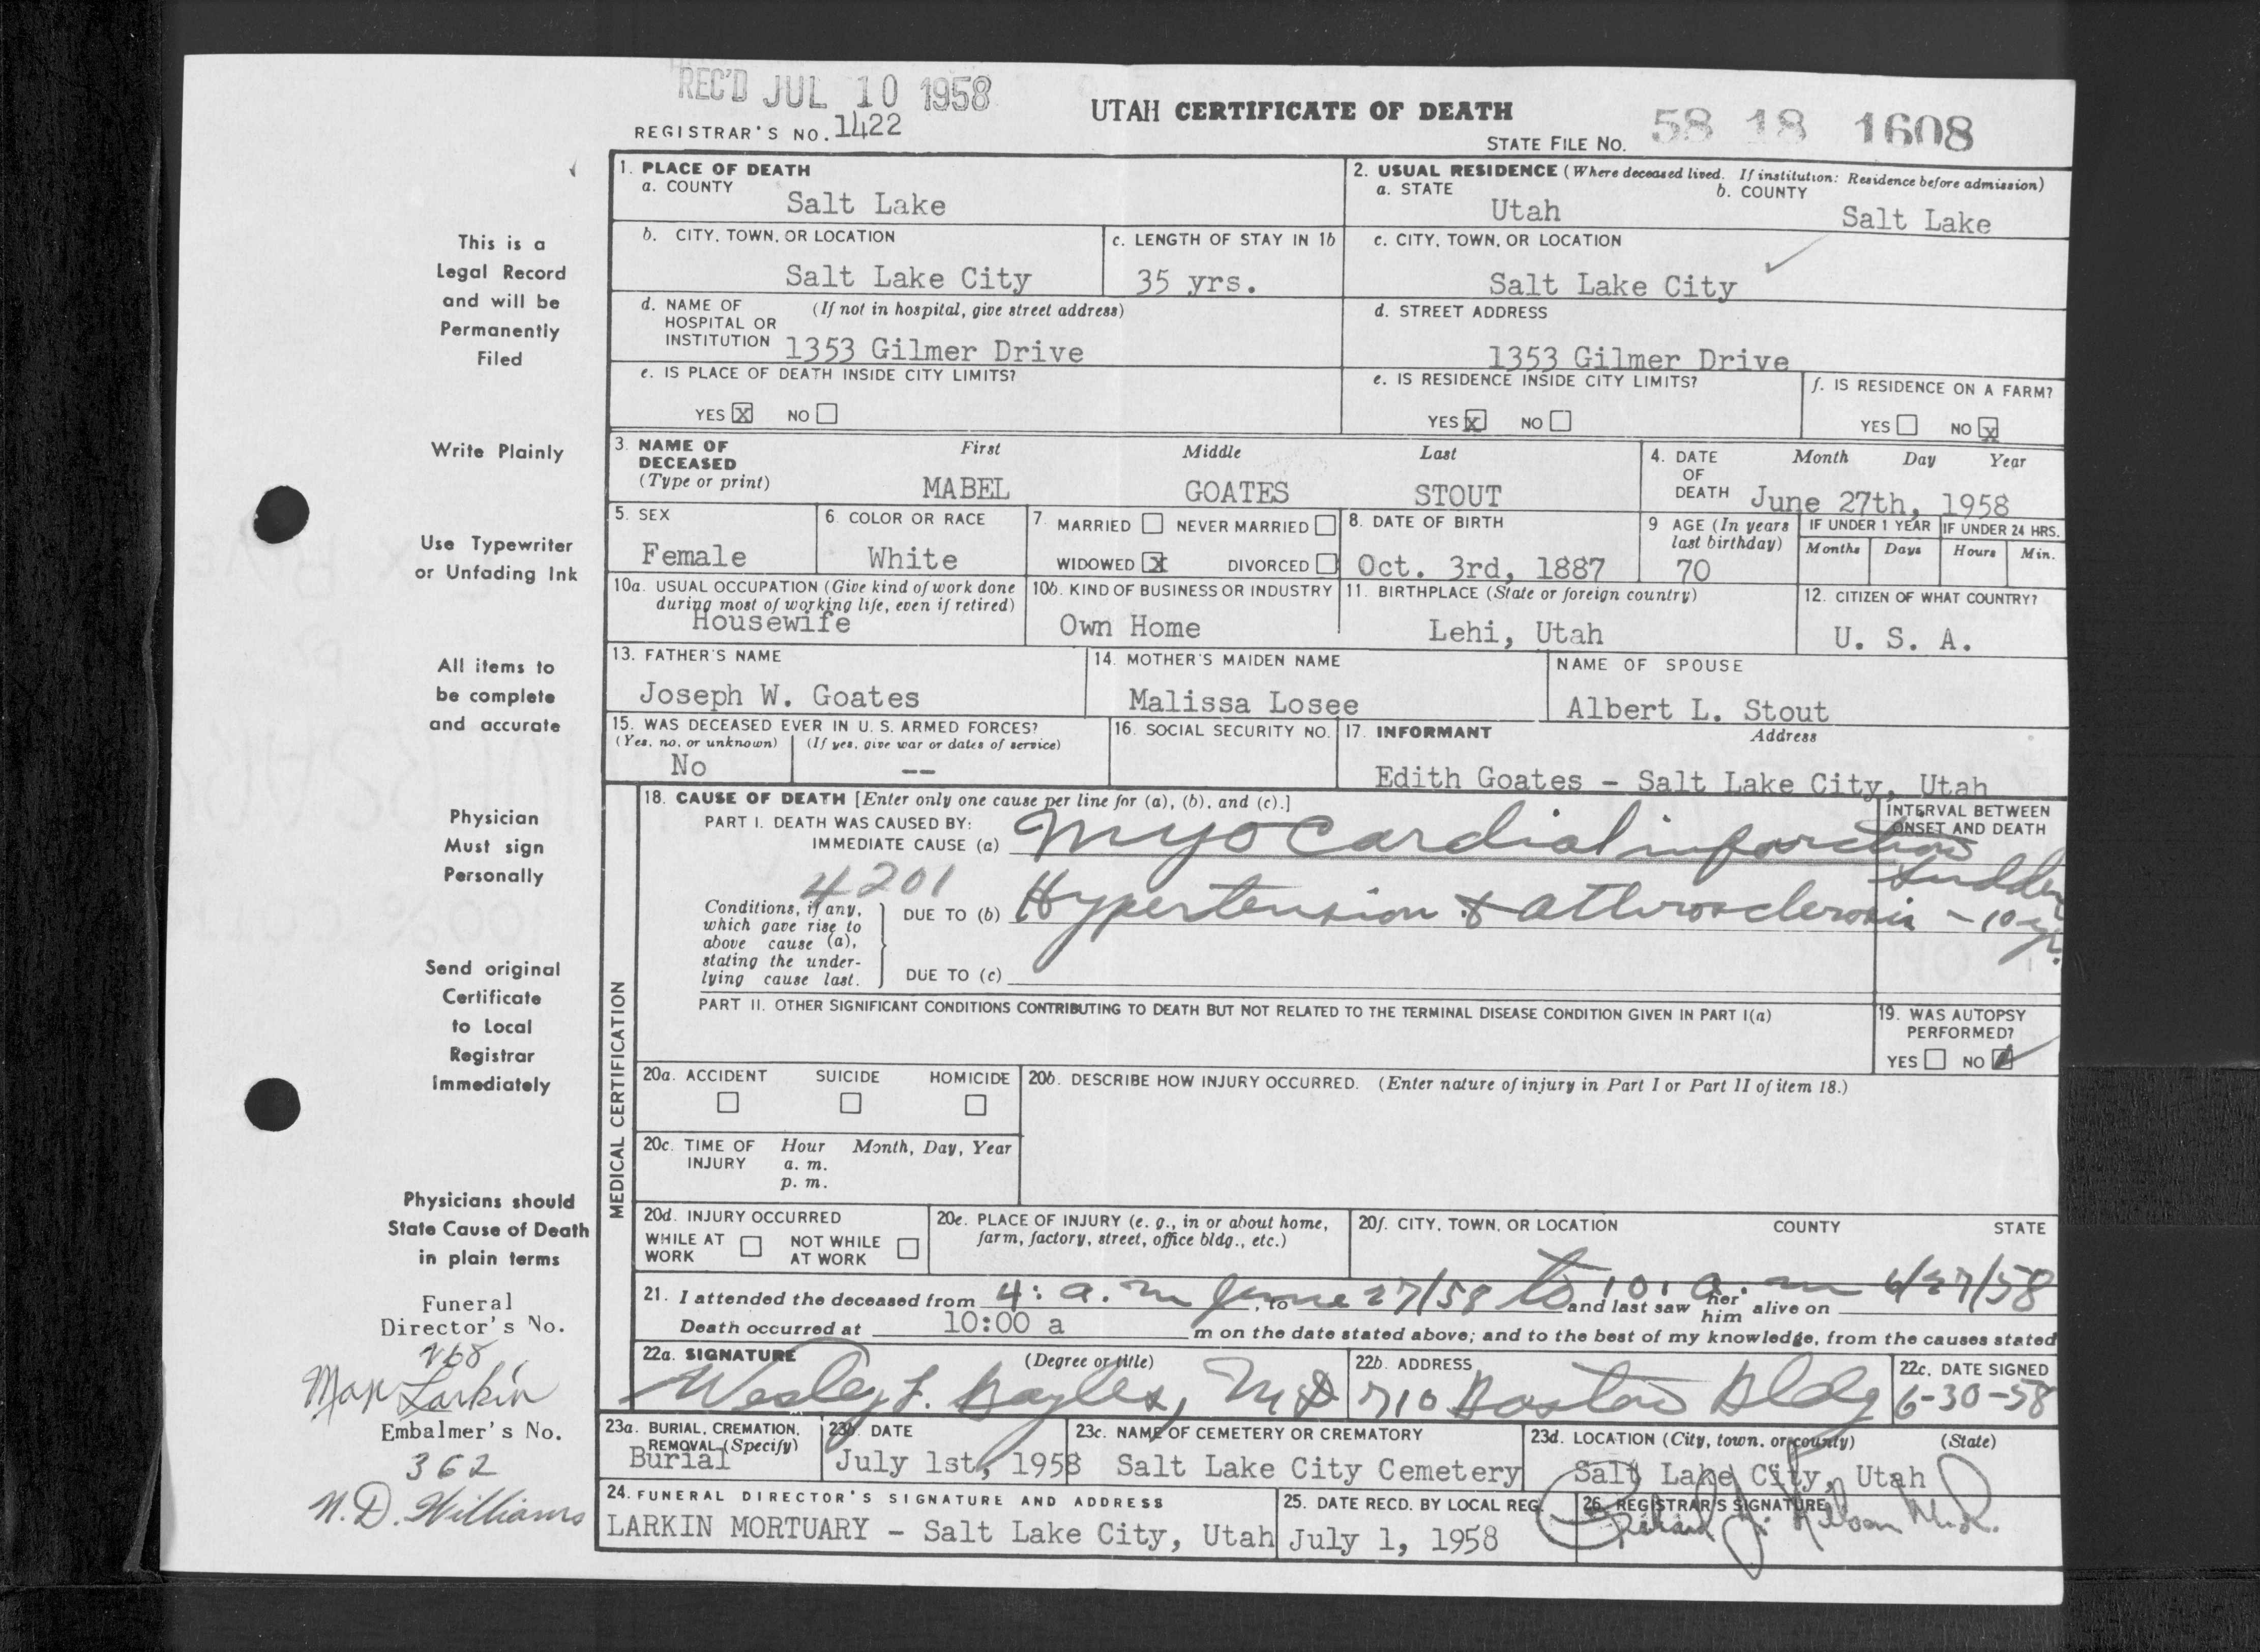 REC'D JUL 10 1958
REGISTRAR'S NO. 1422
UTAH CERTIFICATE OF DEATH
STATE FILE NO. 58 18 1608
This is a
Legal Record
and will be
Permanently
Filed
Write Plainly
Use Typewriter
or Unfading Ink
All items to
be complete
and accurate
Physician
Must sign
Personally
Send original
Certificate
to Local
Registrar
immediately
Physicians should
State Cause of Death
in plain terms
Funeral
Director's No.
268
Max Larkin
Embalmer's No.
362
N.D. Williams
1. PLACE OF DEATH
a. COUNTY
Salt Lake
2. USUAL RESIDENCE (Where deceased lived. If institution: Residence before admission)
a. STATE b. COUNTY
Utah Salt Lake
b. CITY, TOWN, OR LOCATION
Salt Lake City
c. LENGTH OF STAY IN 1b
35 yrs.
c. CITY, TOWN, OR LOCATION
Salt Lake City
d. NAME OF (If not in hospital, give street address)
HOSPITAL OR
INSTITUTION 1353 Gilmer Drive
d. STREET ADDRESS
1353 Gilmer Drive
e. IS PLACE OF DEATH INSIDE CITY LIMITS?
YES X NO
e. IS RESIDENCE INSIDE CITY LIMITS?
YES X NO
f. IS RESIDENCE ON A FARM?
YES NO X
3. NAME OF First Middle Last
DECEASED
(Type or print) MABEL GOATES STOUT
4. DATE Month Day Year
OF
DEATH June 27th, 1958
5. SEX
Female
6. COLOR OR RACE
White
7. MARRIED NEVER MARRIED
WIDOWED X DIVORCED
8. DATE OF BIRTH
Oct. 3rd, 1887
9 AGE (In years
last birthday)
70
IF UNDER 1 YEAR IF UNDER 24 HRS.
Months Days Hours Min.
10a. USUAL OCCUPATION (Give kind of work done
during most of working life, even if retired)
Housewife
10b. KIND OF BUSINESS OR INDUSTRY
Own Home
11. BIRTHPLACE (State or foreign country)
Lehi, Utah
12. CITIZEN OF WHAT COUNTRY?
U. S. A.
13. FATHER'S NAME
Joseph W. Goates
14. MOTHER'S MAIDEN NAME
Malissa Losee
NAME OF SPOUSE
Albert L. Stout
15. WAS DECEASED EVER IN U. S. ARMED FORCES?
(Yes, no, or unknown) (If yes, give war or dates of service)
No --
16. SOCIAL SECURITY NO.
17. INFORMANT Address
Edith Goates - Salt Lake City, Utah
MEDICAL CERTIFICATION
18. CAUSE OF DEATH [Enter only one cause per line for (a), (b), and (c).]
PART I. DEATH WAS CAUSED BY:
IMMEDIATE CAUSE (a) Myocardial infarction
INTERVAL BETWEEN
ONSET AND DEATH
Sudden
4201
Conditions, if any,
which gave rise to
above cause (a),
stating the under-
lying cause last.
DUE TO (b) Hypertension & athrosclerosis - 10 yr.
DUE TO (c)
PART II. OTHER SIGNIFICANT CONDITIONS CONTRIBUTING TO DEATH BUT NOT RELATED TO THE TERMINAL DISEASE CONDITION GIVEN IN PART I(a)
19. WAS AUTOPSY
PERFORMED?
YES NO
20a. ACCIDENT SUICIDE HOMICIDE
20b. DESCRIBE HOW INJURY OCCURRED. (Enter nature of injury in Part I or Part II of item 18.)
20c. TIME OF Hour Month, Day, Year
INJURY a. m.
p. m.
20d. INJURY OCCURRED
WHILE AT NOT WHILE
WORK AT WORK
20e. PLACE OF INJURY (e. g., in or about home,
farm, factory, street, office bldg., etc.)
20f. CITY, TOWN, OR LOCATION COUNTY STATE
21. I attended the deceased from 4: a.m June 27/58, to to 10: a. m and last saw her him alive on 6/27/58
Death occurred at 10:00 a m on the date stated above; and to the best of my knowledge, from the causes stated
22a. SIGNATURE (Degree or title)
Wesley F. Bayles, MD
22b. ADDRESS
710 Boston Bldg
22c. DATE SIGNED
6-30-58
23a. BURIAL, CREMATION,
REMOVAL (Specify)
Burial
23b. DATE
July 1st, 1958
23c. NAME OF CEMETERY OR CREMATORY
Salt Lake City Cemetery
23d. LOCATION (City, town, or county) (State)
Salt Lake City, Utah
24. FUNERAL DIRECTOR'S SIGNATURE AND ADDRESS
LARKIN MORTUARY - Salt Lake City, Utah
25. DATE RECD. BY LOCAL REG.
July 1, 1958
26. REGISTRAR'S SIGNATURE